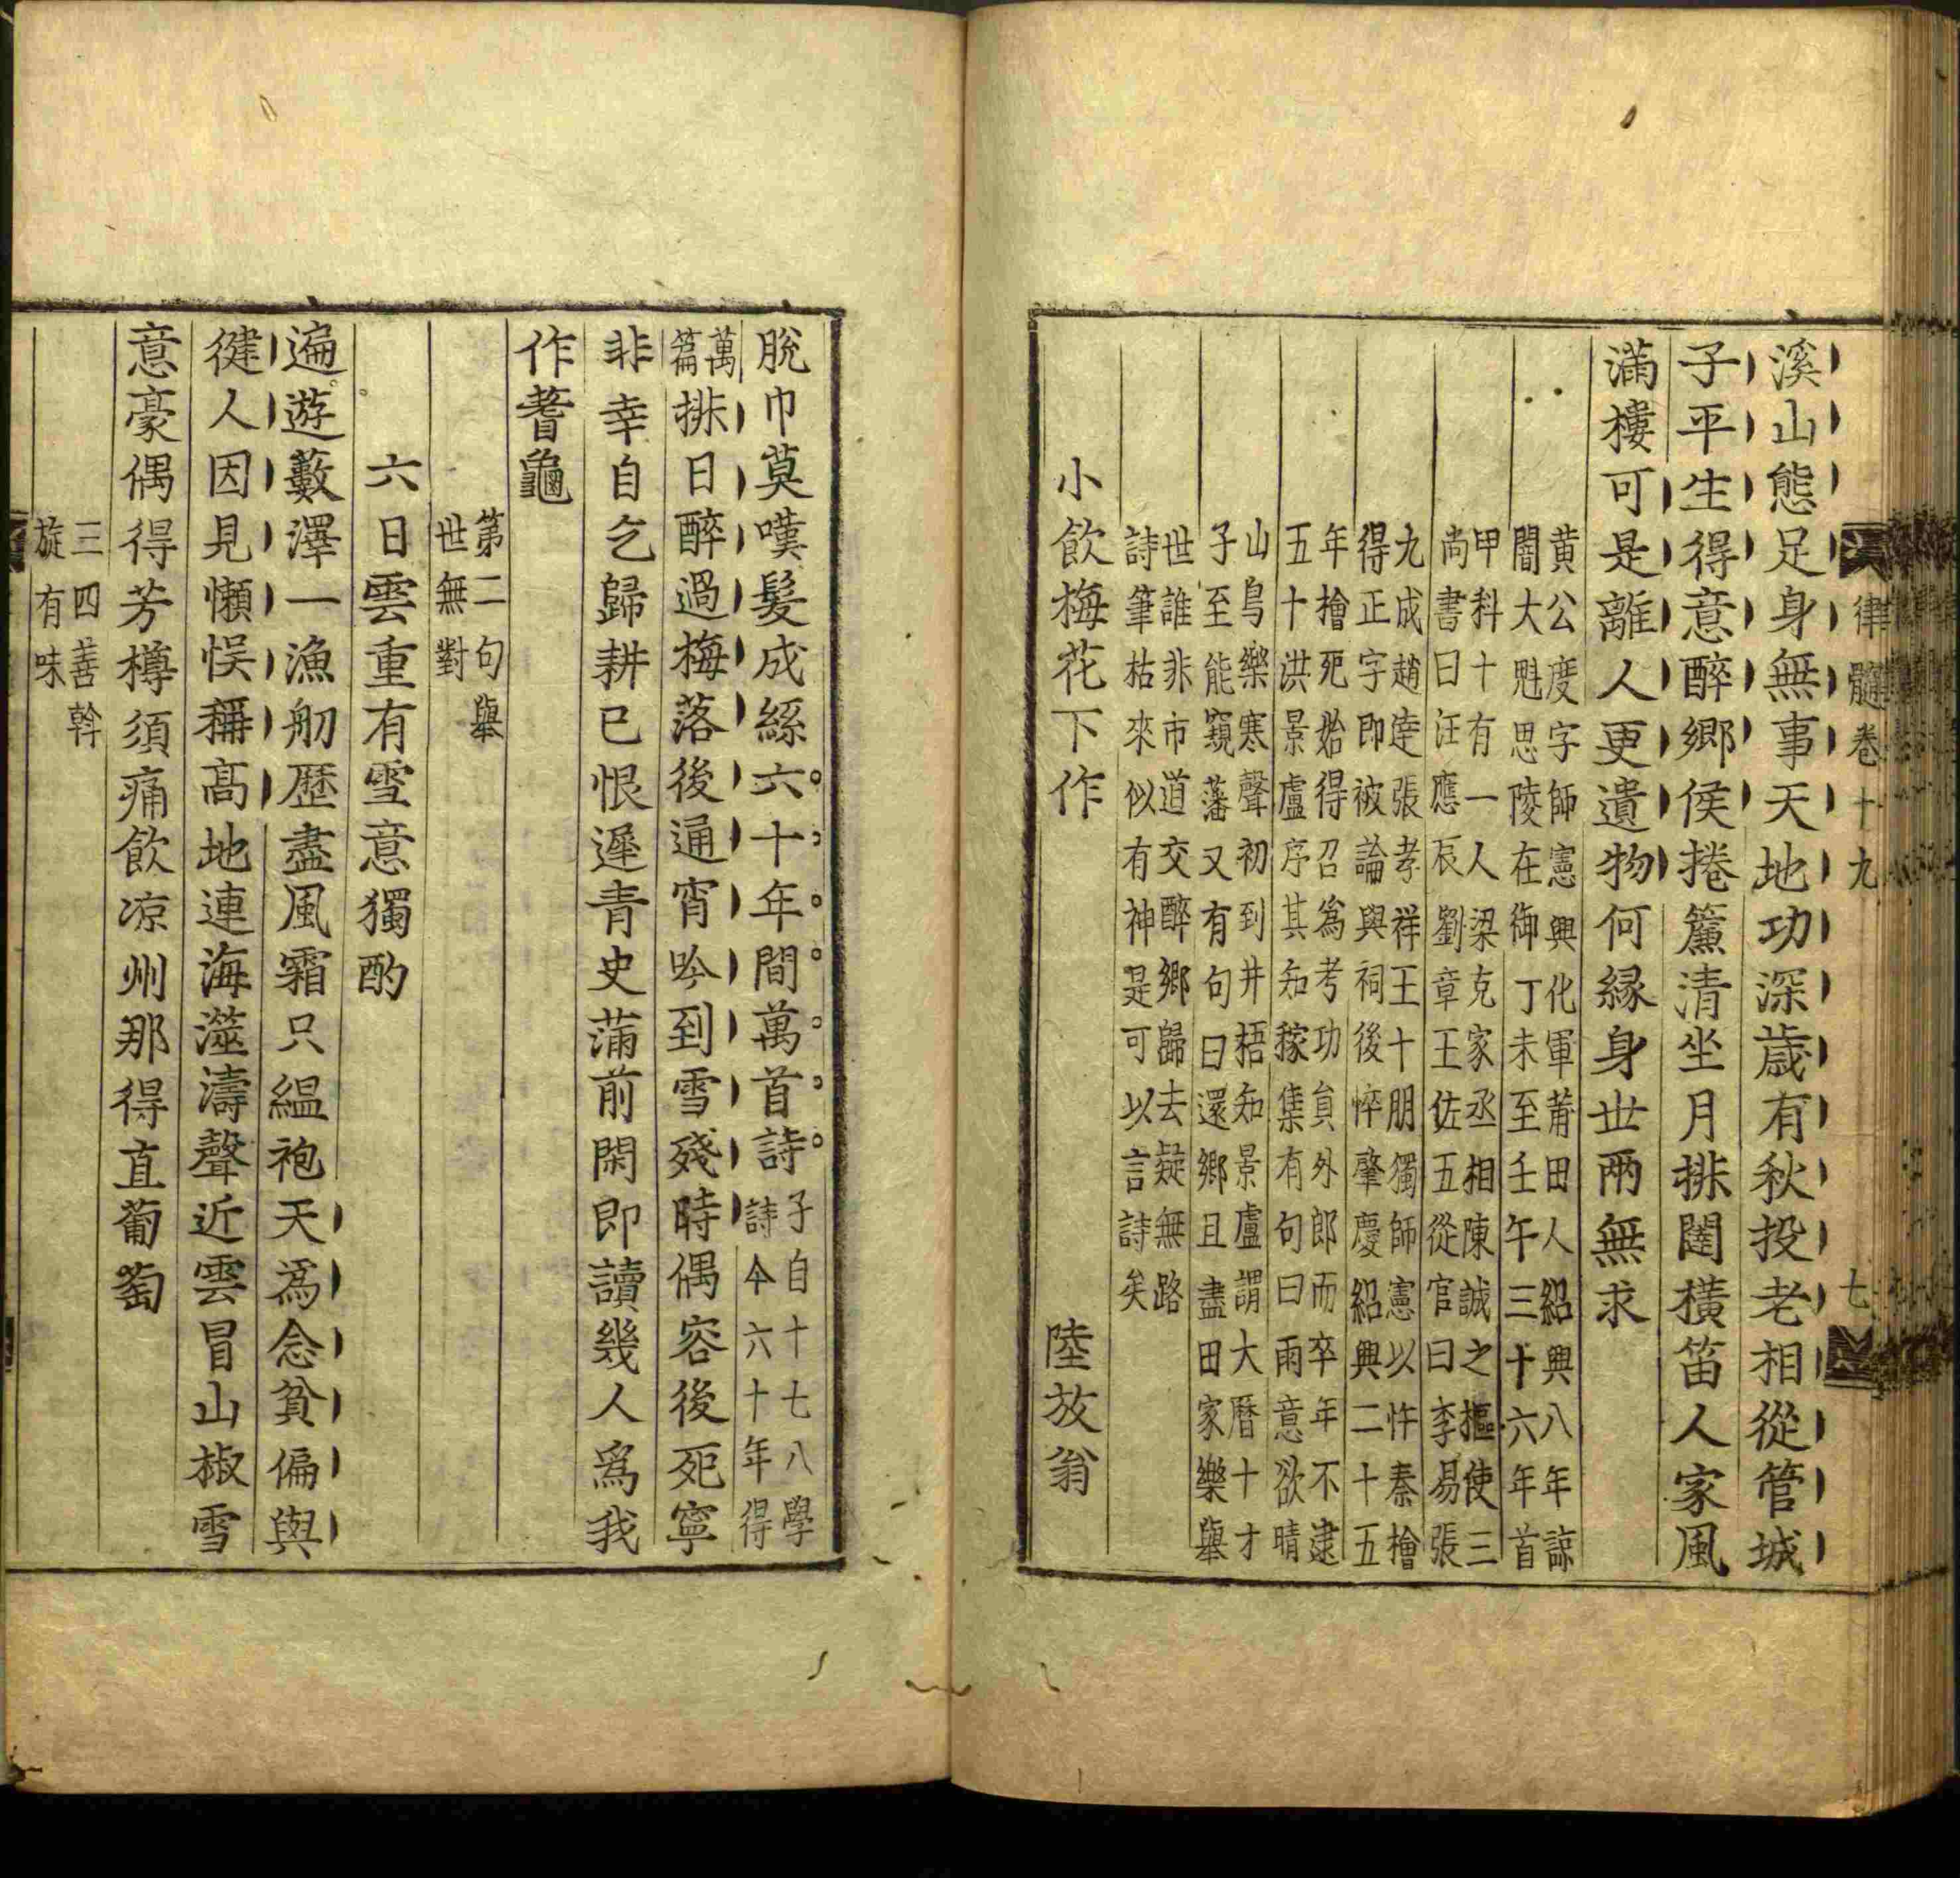 律髓卷十九
七
溪山態足身無事天地功深歲有秋投老相從管城
子平生得意醉鄉侯捲簾清坐月排闥橫笛人家風
滿樓可是離人更遺物何緣身世兩無求
黄公度字師憲興化軍莆田人紹興八年諒
闇大魁思陵在御丁未至壬午三十六年首
甲科十有一人梁克家丞相陳誠之樞使三
尚書曰汪應辰劉章王佐五從官曰李易張
九成趙逵張孝祥王十朋獨師憲以忤秦檜
得正字即被論與祠後悴肇慶紹興二十五
年檜死始得召爲考功負外郎而卒年不逮
五十洪景盧序其知稼集有句曰雨意欲晴
山鳥樂寒聲初到井梧知景盧謂大曆十才
子至能窺藩又有句曰還鄉且盡田家樂舉
世誰非市道交醉鄉歸去疑無路
詩筆枯來似有神是可以言詩矣
小飲梅花下作 陸放翁
脫巾莫嘆髮成絲六十年間萬首詩
子自十七八學
詩今六十年得
萬
篇
排日醉過梅落後通宵吟到雪殘時偶容後死寧
非幸自乞歸耕已恨遲青史蒲前閑即讀幾人爲我
作蓍龜
第二句舉
世無對
六日雲重有雪意獨酌
遍遊藪澤一漁舠歷盡風霜只縕袍天爲念貧偏與
健人因見懶悮稱高地連海澨濤聲近雲冒山椒雪
意豪偶得芳樽須痛飲凉州那得直葡萄
三四善斡
旋有味